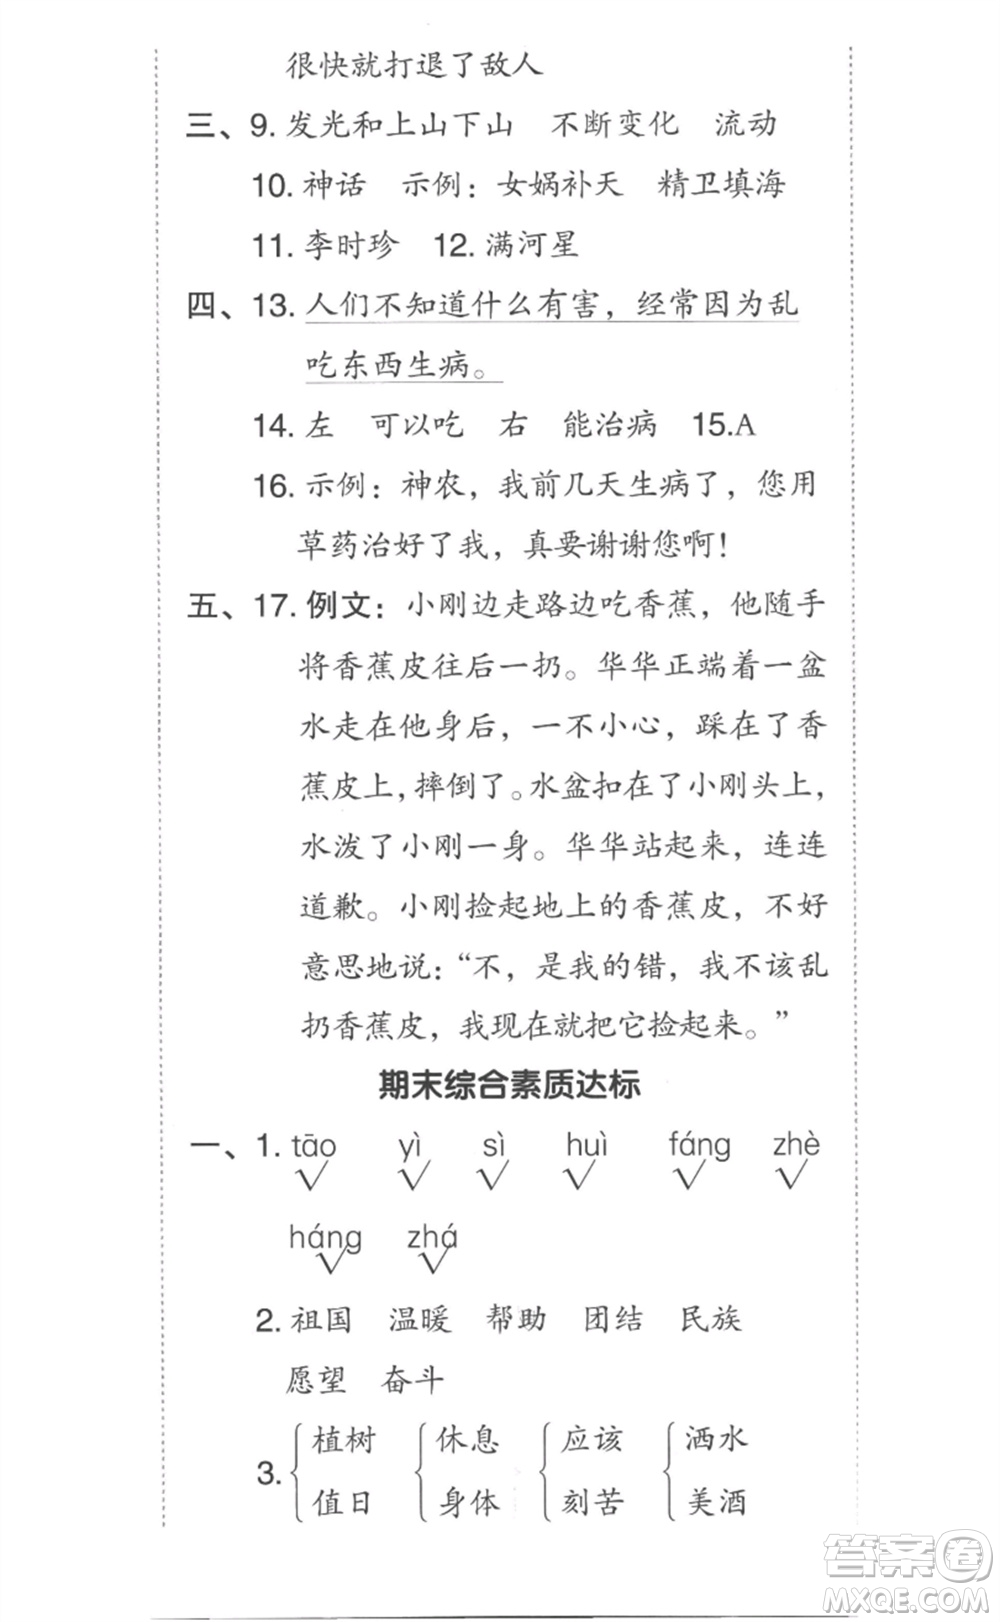 很快就打退了敌人
三、9. 发光和上山下山 不断变化 流动
10. 神话 示例：女娲补天 精卫填海
11. 李时珍 12. 满河星
四、13. 人们不知道什么有害，经常因为乱
吃东西生病。
14. 左 可以吃 右 能治病 15.A
16. 示例：神农，我前几天生病了，您用
草药治好了我，真要谢谢您啊！
五、17. 例文：小刚边走路边吃香蕉，他随手
将香蕉皮往后一扔。华华正端着一盆
水走在他身后，一不小心，踩在了香
蕉皮上，摔倒了。水盆扣在了小刚头上，
水泼了小刚一身。华华站起来，连连
道歉。小刚捡起地上的香蕉皮，不好
意思地说：“不，是我的错，我不该乱
扔香蕉皮，我现在就把它捡起来。”
期末综合素质达标
一、1. tāo yì sì huì fáng zhè
√ √ √ √ √ √
háng zhá
√ √
2. 祖国 温暖 帮助 团结 民族
愿望 奋斗
植树 休息 应该 洒水
3.
值日 身体 刻苦 美酒
答案圈
MXQE.COM